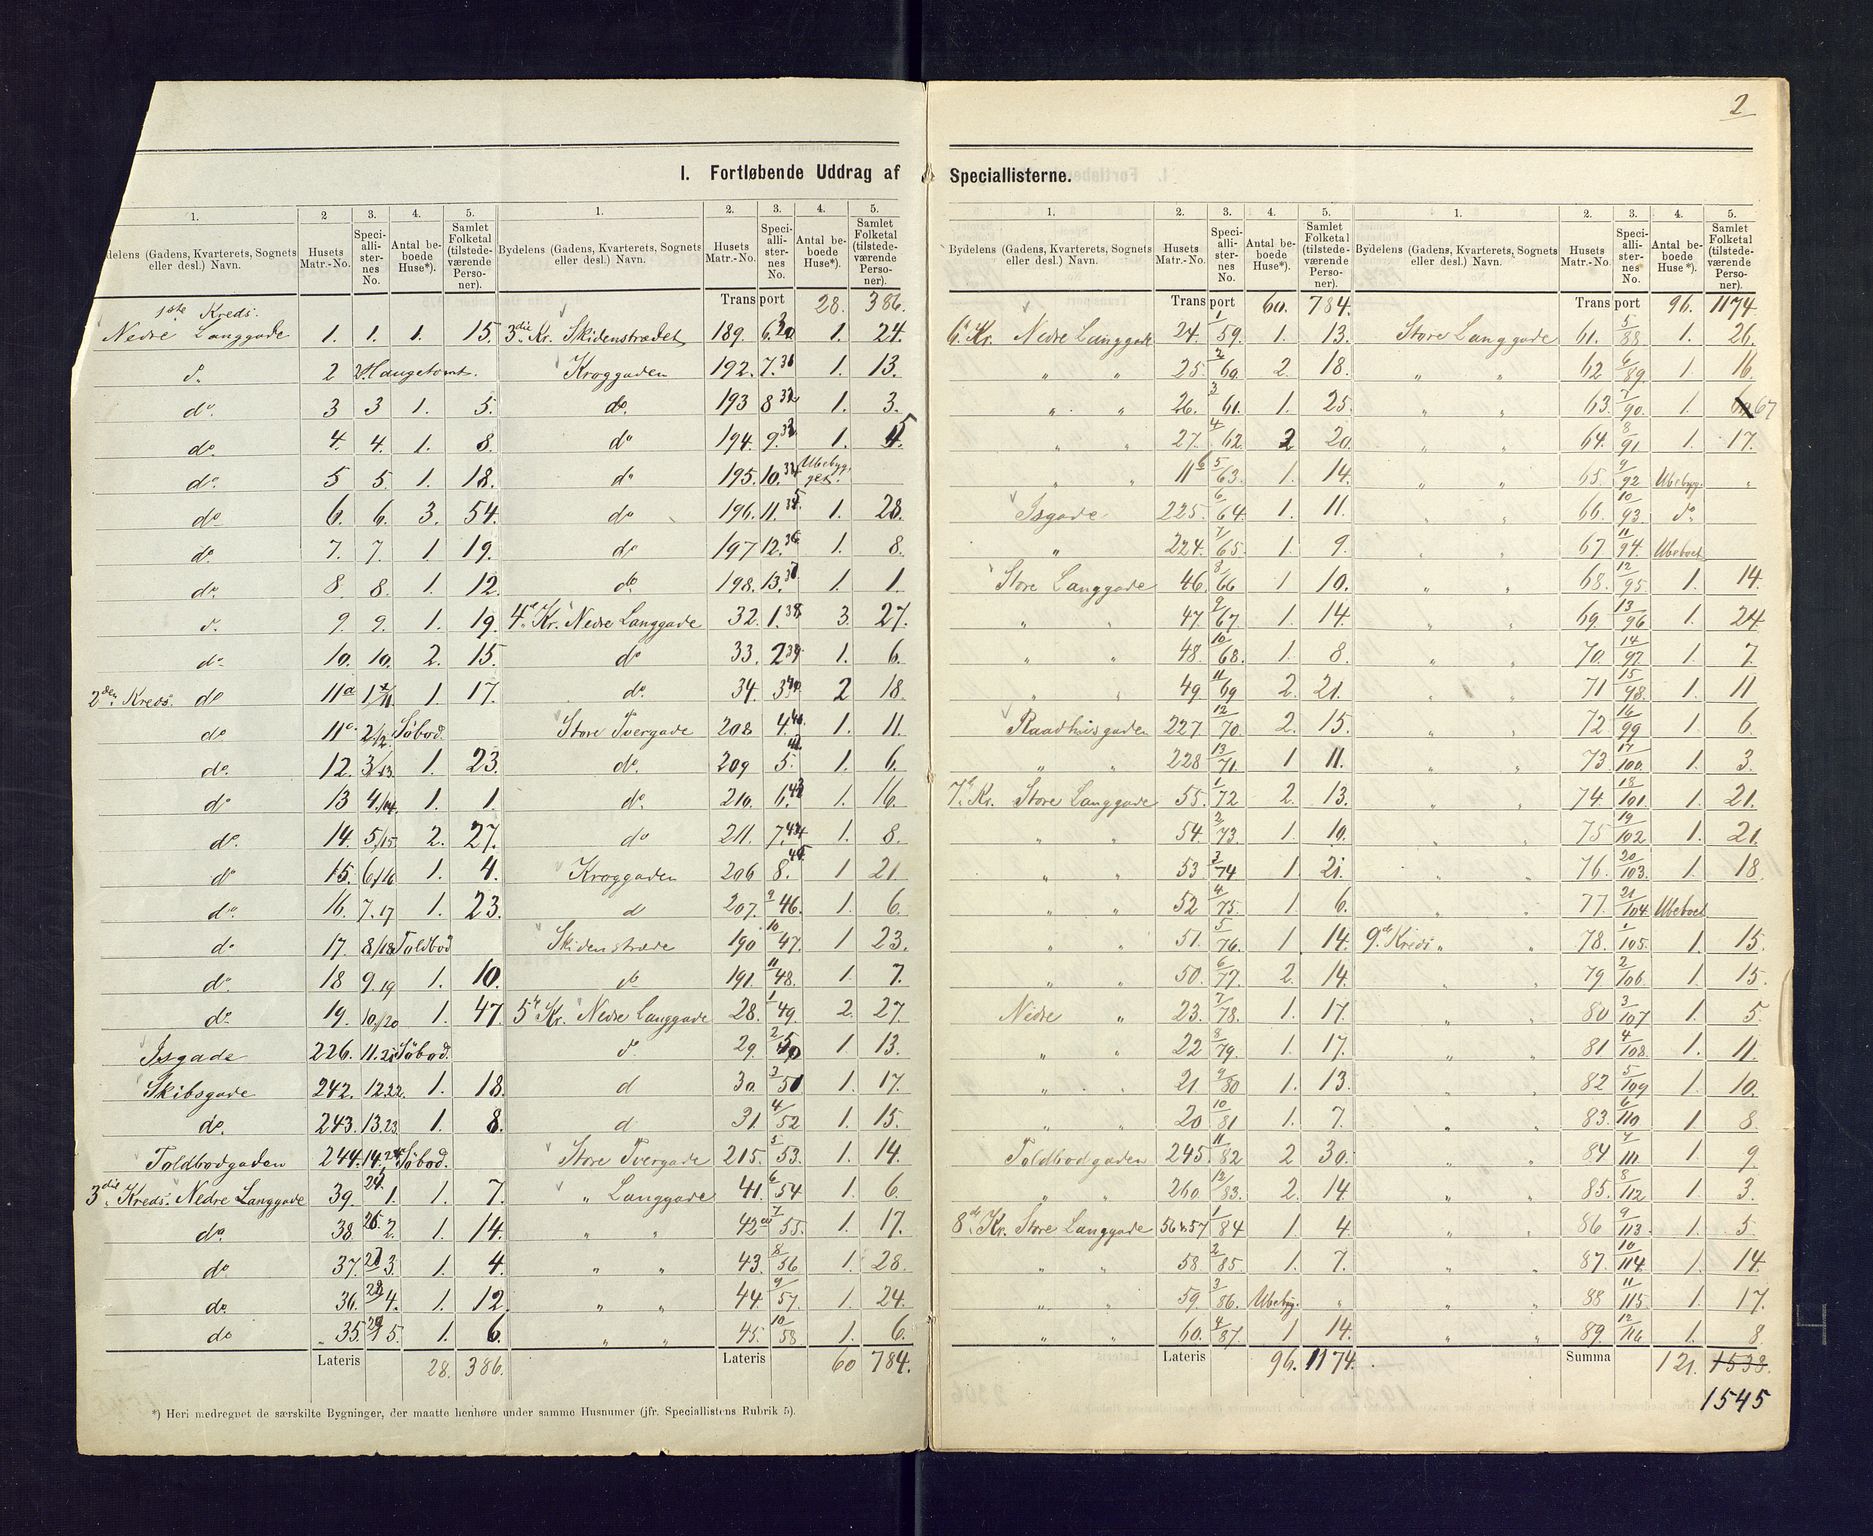 2
I. Fortløbende Uddrag af Speciallisterne.
1. 2 3. 4. 5. 1. 2. 3. 4. 5.
delens (Gadens, Kvarterets, Sognets eller desl.) Navn. Husets Matr.-No. Speciallisternes No. Antal beboede Huse*). Samlet Folketal (tilstedeværende Personer). Bydelens (Gadens, Kvarterets, Sognets eller desl.) Navn. Husets Matr.-No. Speciallisternes No. Antal beboede Huse*). Samlet Folketal (tilstedeværende Personer).
1ste Kreds.
Nedre Langgade 1. 1. 1. 15.
do. 2 2. Haugetomt.
do. 3 3 1. 5.
do. 4. 4. 1. 8.
do. 5 5. 1. 18.
do 6. 6. 3. 54.
do. 7. 7. 1 19.
do. 8. 8. 1. 12.
do. 9. 9. 1. 19.
do. 10. 10. 2. 15.
2den Kreds. do 11a 1/11 1. 17.
do 11 2/12 Söbod.
do. 12. 3/13. 1. 23.
do 13 4/14. 1. 1.
do. 14. 5/15 2. 27.
do 15. 6/16 1. 4.
do. 16. 7.17 1. 23.
do 17. 8/18 Toldbod
do. 18 9.19 1. 10.
do. 19. 10/20 1. 47.
Isgade 226. 11.21 Söbod.
Skibsgade 242. 12.22. 1. 18.
do. 243. 13.23. 1. 8.
Toldbodgaden 244. 14.24 Söbod.
3die Kreds. Nedre Langgade 39. 1. 1. 7.
do. 38. 26. 2. 1. 14.
do. 37. 27 3. 1. 4.
do 36. 28 4. 1. 12.
do 35. 29 5. 1. 6.
Lateris 28. 386.
Transport 28. 386.
3die Kr. Skidenstrædet 189. 6. 30 1. 24.
Kroggaden 192. 7. 31 1. 13.
do. 193 8 32 1. 3.
do 194. 9. 33 1.
do 195. 10. 34 Ubebygget.
do 196. 11. 35. 1. 28.
do 197 12. 36 1. 8.
do. 198. 13. 37 1. 1.
4de Kr. Nedre Langgade 32. 1. 38 3. 27.
do 33. 2 39. 1. 6.
do. 34. 3 40. 2 18.
Store Tvergade 208 4. 41. 1. 11.
do. 209 5. 42 1. 6.
do. 210. 6. 43 1. 16.
do 211. 7. 44 1. 8.
Kroggaden 206 8. 45 1 21
d 207. 9 46. 1. 6.
Skidenstræde 190 10 47. 1 23.
do 191. 11 48. 1. 7.
5te Kr. Nedre Langgade 28. 1 49. 2. 27.
do. 29. 2 50 1. 13.
d 30 3 51 1. 17.
d 31. 4/52 1. 15.
Store Tvergade 215. 5 53. 1. 14.
" Langgade 41. 6 54 1. 6.
" " 42 7/55. 1. 17.
" " 43. 8/56 1. 28.
" " 44. 9/57. 1. 24.
" " 45. 10/58 1. 6.
Lateris 60 784.
*) Heri medregnet de særskilte Bygninger, der maatte henhøre under samme Husnumer (jfr. Speciallistens Rubrik 5).
1. 2. 3. 4. 5. 1. 2. 3. 4. 5.
Bydelens (Gadens, Kvarterets, Sognets eller desl.) Navn. Husets Matr.-No. Speciallisternes No. Antal beboede Huse*). Samlet Folketal (tilstedeværende Personer). Bydelens (Gadens, Kvarterets, Sognets eller desl.) Navn. Husets Matr.-No. Speciallisternes No. Antal beboede Huse*). Samlet Folketal (tilstedeværende Personer).
Transport 60. 784.
6te Kr. Nedre Langgade 24. 1/59. 1. 13.
" " 25. 2/60. 2. 18.
" " 26. 3/61. 1. 25.
" " 27. 4/62. 2 20.
" " 11b 5/63. 1. 14.
Isgade 225. 6/64. 1. 11.
" 224. 7/65. 1. 9.
Store Langgade 46. 8/66 1 10.
" " 47. 9/67. 1. 14.
" " 48. 10/68. 1. 8.
" " 49 11/69 2. 21.
Raadhusgaden 227. 12/70. 2. 15.
" " 228 13/71. 1 11.
7de Kr. Store Langgade 55. 1/72 2. 13.
" " 54. 2/73. 1. 10.
" " 53 3/74 1. 21.
" " 52 4/75. 1 6.
" " 51. 5/76. 1 14.
" " 50. 6/77. 2. 14.
Nedre " 23. 7/78. 1. 17.
" " 22 8/79. 1. 17.
" " 21 9/80 1. 13.
" " 20 10/81 1. 7.
Toldbodgaden 245. 11/82 2 30.
" " 260 12/83. 2. 14.
8de Kr. Store Langgade 56 & 57 1/84 1 4
" " 58 2/85. 1. 7.
" " 59. 3/86. Ubebyg. "
" " 60. 4/87. 1 14.
Lateris 96. 1174.
Transport 96. 1174.
Store Langgade 61. 5/88 1. 26.
" " 62 6/89. 1. 16
" " 63. 7/90. 1. 67
" " 64. 8/91 1. 17.
" " 65. 9/92 Ubebyg. "
" " 66. 10/93. do.
" " 67. 11/94. Ubeboet
" " 68. 12/95 1. 14.
" " 69. 13/96 1. 24
" " 70. 14/97 1. 7.
" " 71 15/98. 1. 11
" " 72. 16/99 1. 6.
" " 73. 17/100. 1. 3.
" " 74. 18/101 1. 21.
" " 75 19/102 1. 21.
" " 76. 20/103. 1. 18.
" " 77. 21/104. Ubeboet
9de Kreds " " 78. 1/105. 1. 15.
" " 79 2/106 1. 15.
" " 80 3/107 1. 5.
" " 81 4/108. 1. 11.
" " 82 5/109 1. 10.
" " 83. 6/110 1. 8.
" " 84 7/111. 1. 9
" " 85. 8/112 1. 3.
" " 86 9/113. 1. 5.
" " 87. 10/114. 1. 14
" " 88 11/115. 1. 17.
" " 89. 12/116 1. 8.
Summa 121. 1538.
1545